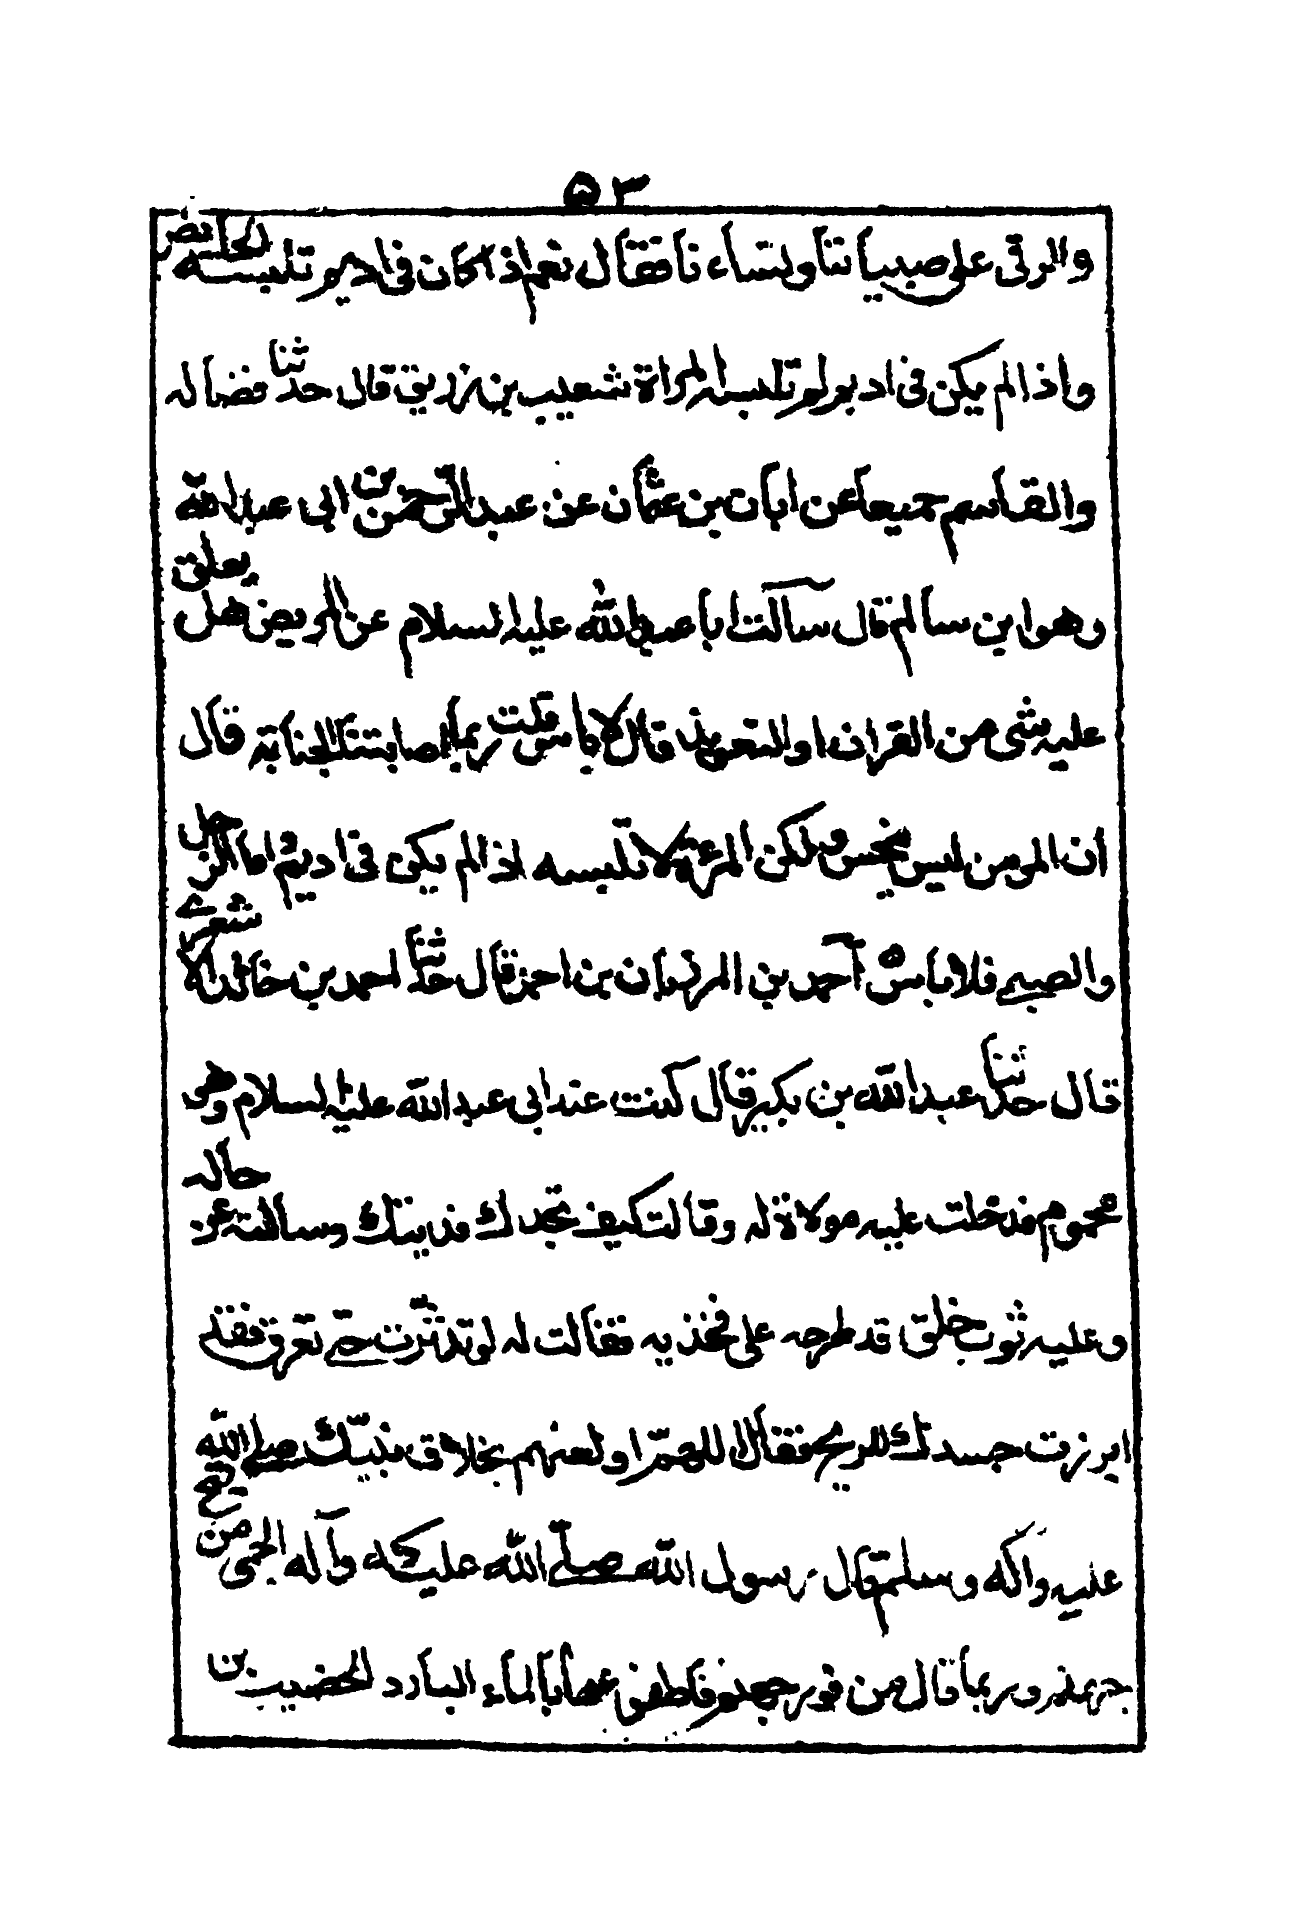 ٥٣
والرقى على صبياننا ولنساءنا فقال نعم اذا كان فى اديم تلبسه الحائض
واذا لم يكن فى اديم لم تلبسه المراة شعيب بن زريق قال حدثنا فضاله
والقاسم جميعا عن ابان بن عثمان عن عبد الرحمن بن ابى عبد الله
وهو ابن سالم قال سألت ابا عبد الله عليه السلام عن المريض هل يعلق
عليه شى من القران او التعويذ قال لا باس قلت ربما اصابتنا الجنابة قال
ان المومن ليس بنجس ولكن المرءة لا تلبسه اذا لم يكن فى اديم اما الرجل
والصبى فلا باس احمد بن المرزبان بن احمد قال حدثنا احمد بن خالد الاشعرى
قال حدثنا عبد الله بن بكير قال كنت عند ابى عبد الله عليه السلام وهو
محموم فدخلت عليه مولاة له وقالت كيف تجدك فديتك وسالته عن حاله
وعليه ثوب خلق قد طرحه على فخذيه فقالت له لو تدثرت حتى تعرق فقد
ابرزت جسدك للريح فقال اللهم اولعنهم بخلاف نبيك صلى الله
عليه واله وسلم قال رسول الله صلى الله عليه وآله الحمى من فيح
جهنم وربما قال من فور جهنم فاطفوها بالماء البارد الخضيب بن